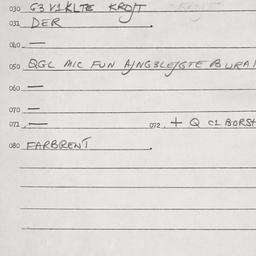 030 G3 V1KLTE KROJT
031 DER
040 —
050 QGL MIC FUN
060 —
070 —
071 — 072 + Q C1 BORST
080 FARBRENT